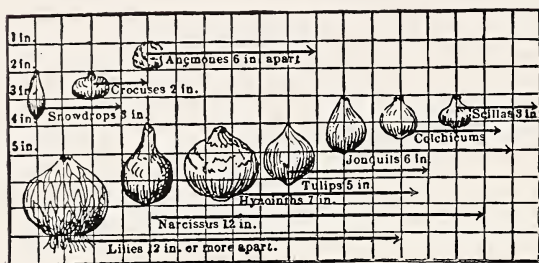 1 in.
2 in.
Anemones 6 in. apart
3 in.
Crocuses 2 in.
Snowdrops 3 in.
Scillas 3 in.
4 in.
Colchicums
5 in.
Jonquils 6 in.
Tulips 5 in.
Hyacinths 7 in.
Narcissus 12 in.
Lilies 12 in. or more apart.